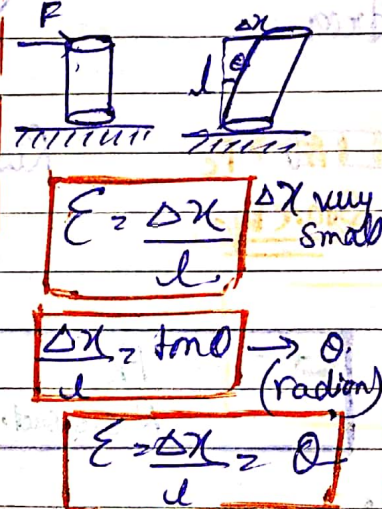 F
Δx
θ
l
ε = Δx / l
Δx very small
Δx / l = tanθ → θ (radian)
ε = Δx / l = θ